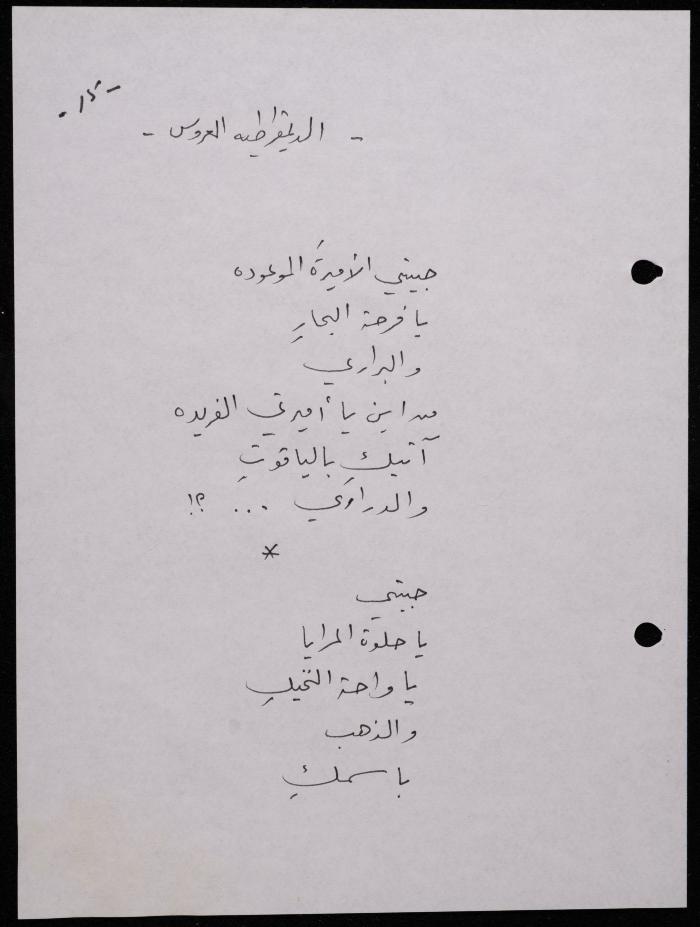 - الديمقراطيه العروس -
حبيبتي الأميرةُ الموعوده
يا فرحة البحارِ
والبراري
من اين يا أميرتي الفريده
آتيكِ بالياقوتِ
والدراري ... ؟!
*
حبيبتي
يا حلوة المرايا
يا واحة النخيلِ
والذهب
باسمكِ